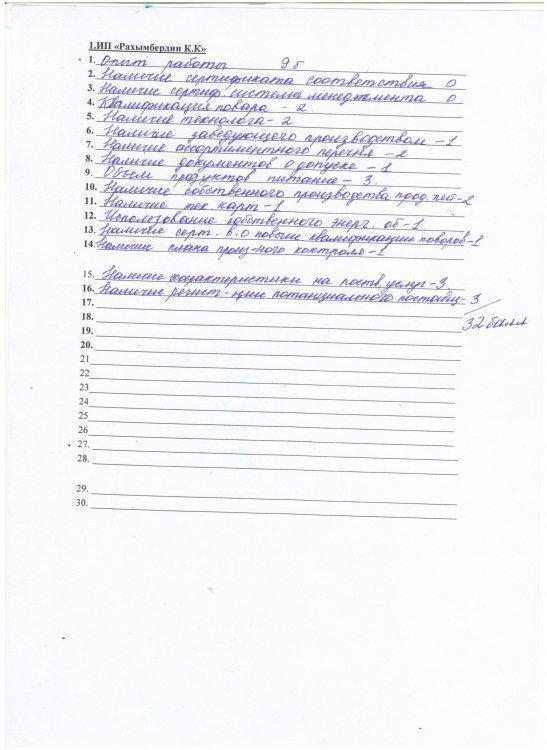 1.ИП «Рахымбердин К.К»
1. Опыт работы 9б
2. Наличие сертификата соответствия 0
3. Наличие сертиф. система менеджмента 0
4. Квалификация повара - 2
5. Наличие технолога - 2
6. Наличие заведующего производством - 1
7. Наличие ассортиментного перечня - 2
8. Наличие документов о допуске - 1
9. Объем продуктов питание - 3.
10. Наличие собственного производства прод. пит-2
11. Наличие тех карт - 1
12. Использование собственного энерг. об - 1.
13. Наличия серт. в. о повыш. квалификации поваров - 1
14. Наличие плана произ-ного контроля - 1
15. Наличие характеристики на поств. услуг - 3.
16. Наличие регист-ции потанциального поставщ - 3
17.
18. 32 балл
19.
20.
21
22
23
24
25
26
27.
28.
29.
30.